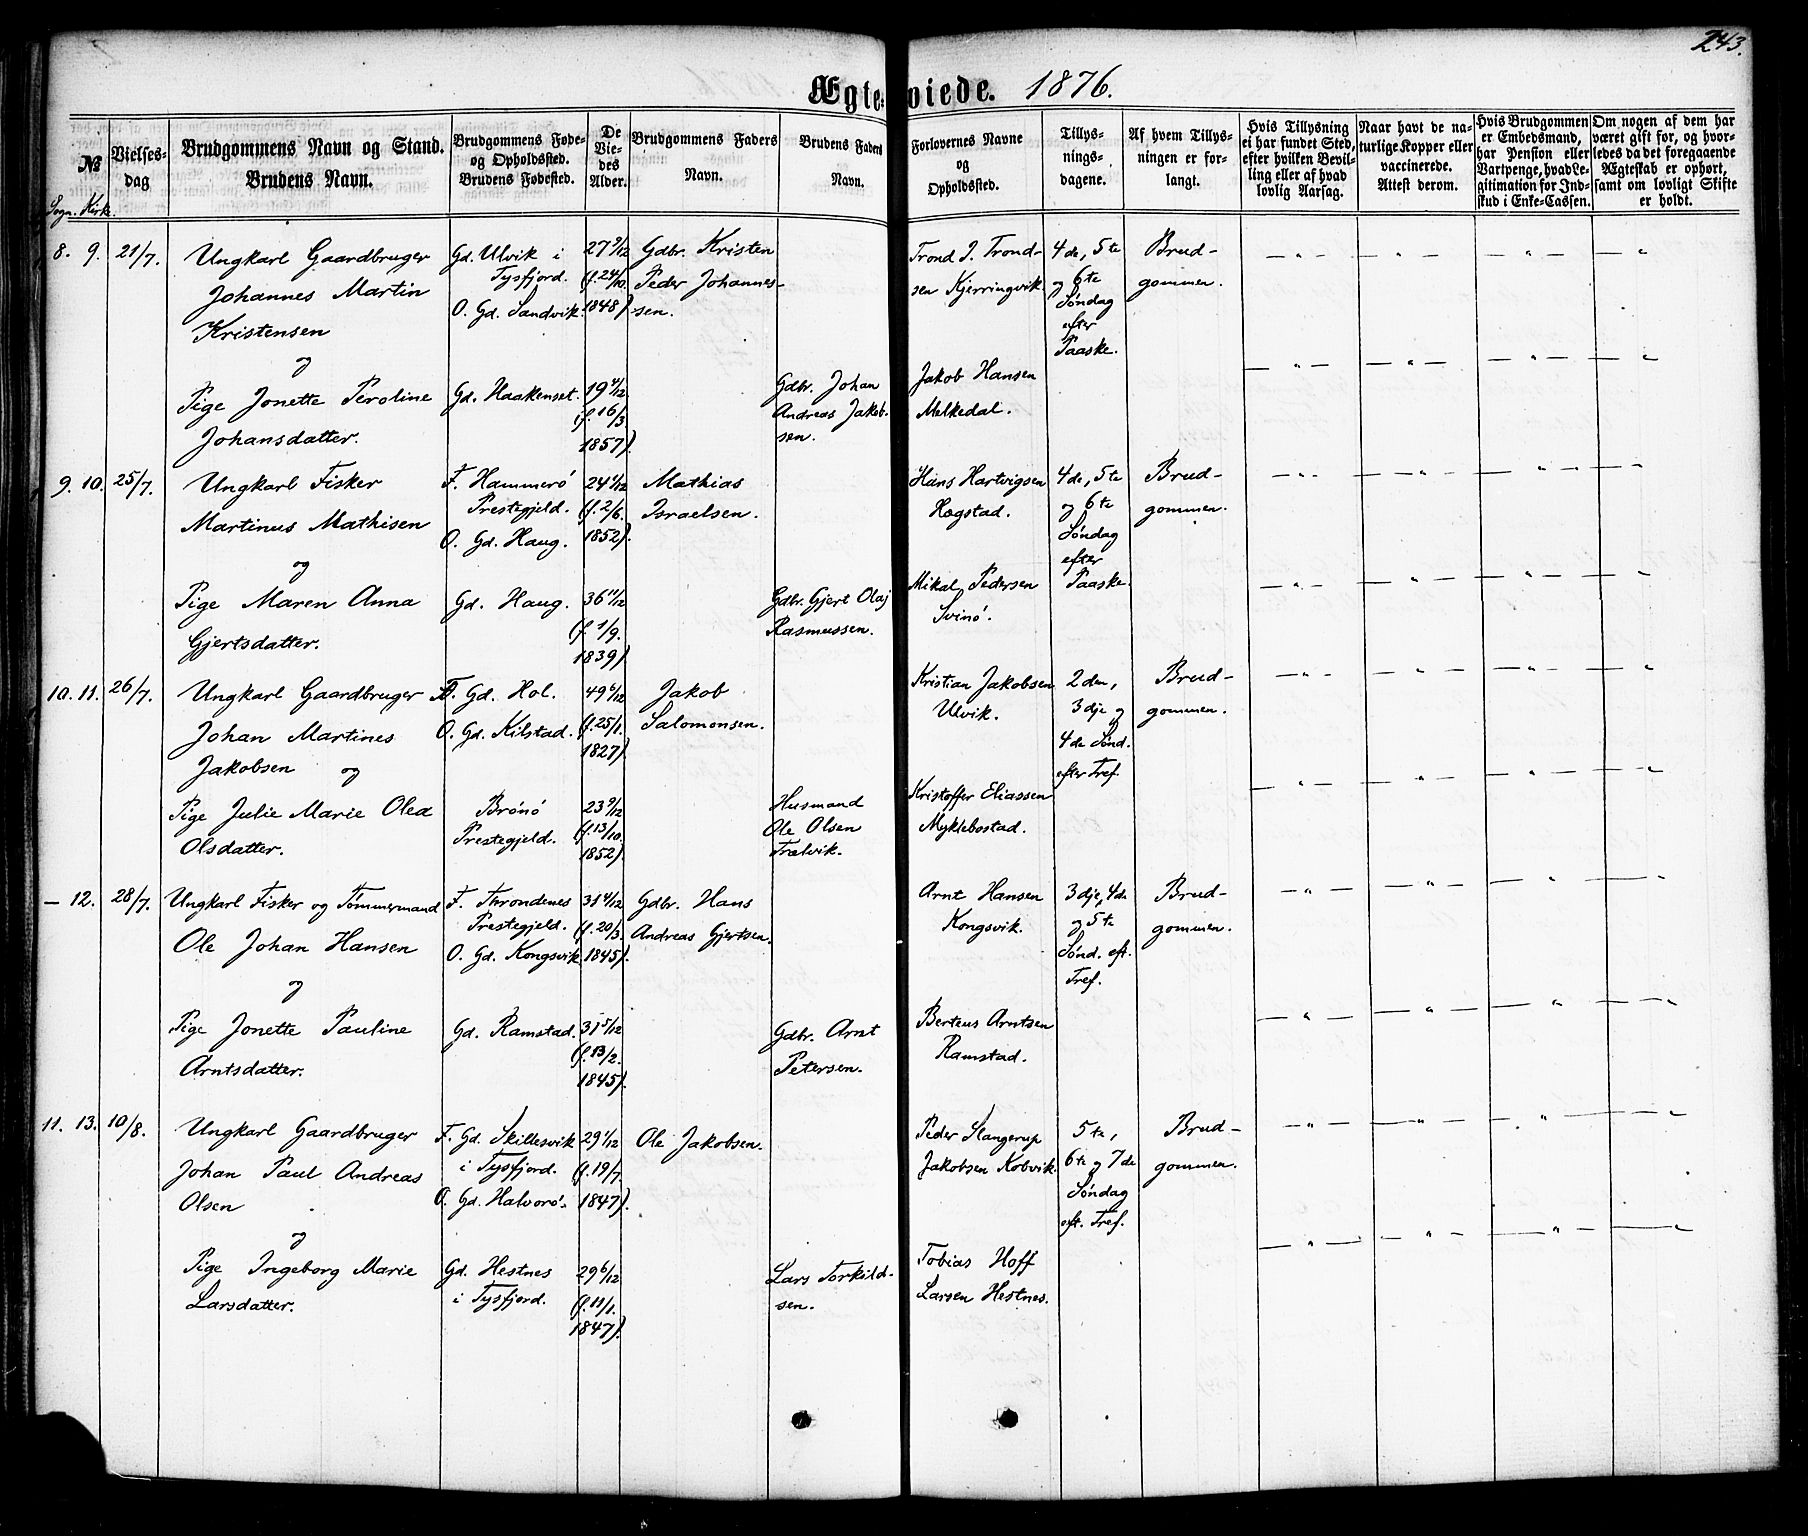 243.
Ægteviede. 1876.
№
Sogn. Kirke.
Vielses-
dag
Brudgommens Navn og Stand.
Brudens Navn.
Brudgommens Føde-
og Opholdssted.
Brudens Fødested.
De
Vie-
des
Alder.
Brudgommens Faders
Navn.
Brudens Faders
Navn.
Forlovernes Navne
og
Opholdssted.
Tillys-
nings-
dagene.
Af hvem Tillys-
ningen er for-
langt.
Hvis Tillysning
ei har fundet Sted,
efter hvilken Bevil-
ling eller af hvad
lovlig Aarsag.
Naar havt de na-
turlige Kopper eller
vaccinerede.
Attest derom.
Hvis Brudgommen
er Embedsmand,
har Pension eller
Vartpenge, hvad Le-
gitimation for Ind-
skud i Enke-Cassen.
Om nogen af dem har
været gift før, og hvor-
ledes da det foregaaende
Ægteskab er ophørt,
samt om lovligt Skifte
er holdt.
8. 9. 21/7.
Ungkarl Gaardbruger
Johannes Martin
Kristensen
og
Pige Jonette Peroline
Johansdatter.
Gd. Ulvik i
Tysfjord.
O. Gd. Sandvik.
Gd. Haakenset.
27 9/12
(f. 24/10.
1848)
19 4/12
(f. 16/3
1857).
Gdbr. Kristen
Peder Johannes-
sen.
Gdbr. Johan
Andreas Jakob-
sen.
Trond J. Trond-
sen Kjerringvik
Jakob Hansen
Melkedal.
4de, 5te
og 6te
Søndag
efter
Paaske.
Brud-
gommen.
9. 10. 25/7.
Ungkarl Fisker
Martinus Mathisen
og
Pige Maren Anna
Gjertsdatter.
F. Hammerø
Prestegjeld.
O. Gd. Haug.
Gd. Haug.
24 1/12
(f. 2/6.
1852).
36 11/12
(f. 1/9.
1839)
Mathias
Israelsen.
Gdbr. Gjert Olaj
Rasmussen.
Hans Hartvigsen
Hegstad.
Mikal Pedersen
Svinø.
4de, 5te
og 6te
Søndag
efter
Paaske.
Brud-
gommen.
10. 11. 26/7.
Ungkarl Gaardbruger
Johan Martines
Jakobsen og
Pige Julie Marie Olea
Olsdatter.
F. Gd. Hol.
O. Gd. Kilstad.
Brønø
Prestegjeld.
49 6/12
(f. 25/1.
1827)
23 9/12
(f. 13/10.
1852)
Jakob
Salomonsen.
Husmand
Ole Olsen
Trælvik.
Kristian Jakobsen
Ulvik.
Kristoffer Eliassen
Myklebostad.
2den,
3dje og
4de Sønd.
efter Tref.
Brud-
gommen.
— 12. 28/7.
Ungkarl Fisker og Tømmermand
Ole Johan Hansen
og
Pige Jonette Pauline
Arntsdatter.
F. Throndenes
Prestegjeld.
O. Gd. Kongsvik
Gd. Ramstad.
31 4/12
(f. 20/3.
1845).
31 5/12
(f. 13/2.
1845).
Gdbr. Hans
Andreas Gjertsen.
Gdbr. Arnt
Petersen.
Arnt Hansen
Kongsvik.
Berteus Arntsen
Ramstad.
3dje, 4de
og 5te
Sønd. eft.
Tref.
Brud-
gommen.
11. 13. 10/8.
Ungkarl Gaardbruger
Johan Paul Andreas
Olsen
og
Pige Ingeborg Marie
Larsdatter.
F. Gd. Skillesvik
i Tysfjord.
O. Gd. Halvorø.
Gd. Hestnes
i Tysfjord.
29 1/12
(f. 19/7.
1847).
29 6/12
(f. 11/1.
1847).
Ole Jakobsen.
Lars Torkild-
sen.
Peder Slangerup
Jakobsen Kobvik.
Tobias Hoff
Larsen Hestnes.
5te,
6te og 7de
Søndag
eft. Tref.
Brud-
gommen.